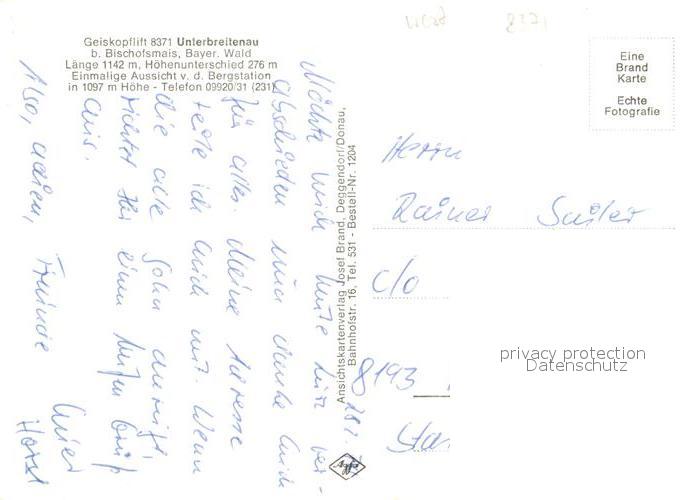 Geiskopflift 8371 Unterbreitenau
b. Bischofsmais, Bayer. Wald
Länge 1142 m, Höhenunterschied 276 m
Einmalige Aussicht v. d. Bergstation
in 1097 m Höhe - Telefon 09920/31 (231)
Möchte mich heute hier ver-
abschieden und danke Euch
für alles. Meine Adresse
teile ich Euch mit. Wenn
die alte Gohn
richtet ihr einen lieben Gruß
aus.
Also, adieu, Freunde
Euer
Horst
Ansichtskartenverlag Josef Brand, Deggendorf/Donau,
Bahnhofstr. 16, Tel. 531 - Bestell-Nr. 1204
Agfa
8371
Eine
Brand
Karte
Echte
Fotografie
Herrn
Rainer Sailer
c/o
8193
privacy protection
Datenschutz